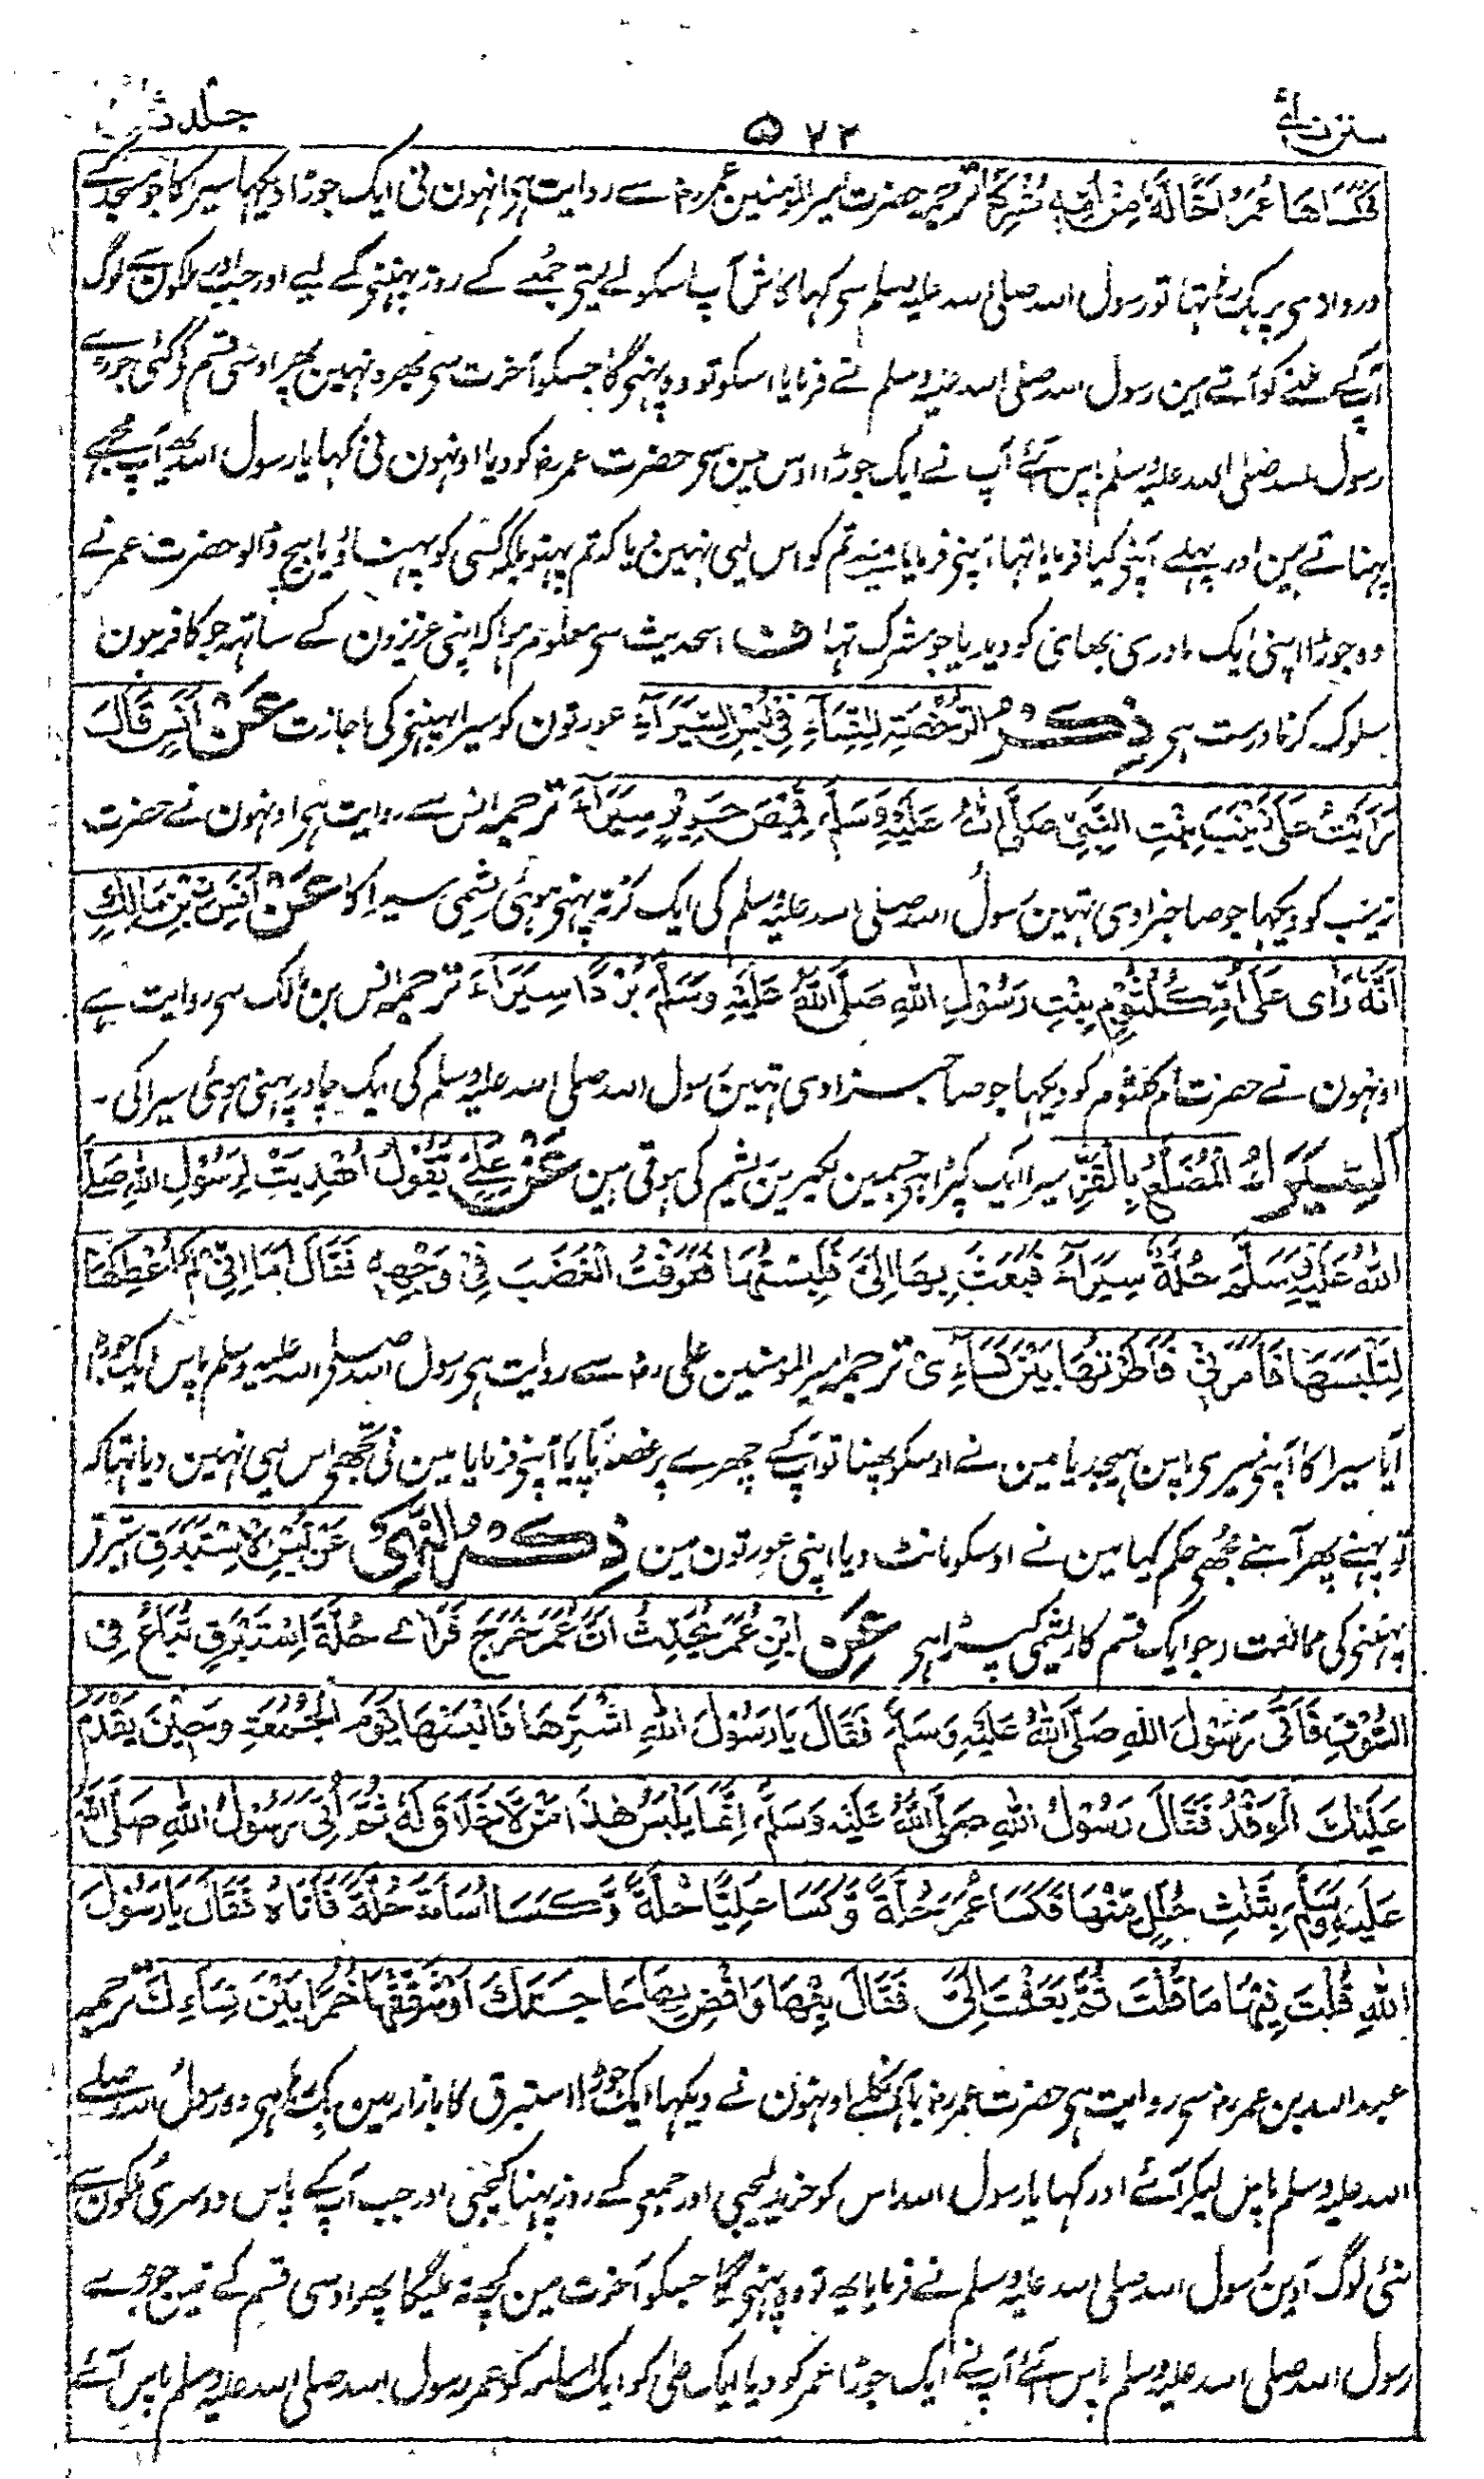 سنن نسائی ۵۷۲ جلد
فَكَسَاهَا عُمَرُ اَخًا لَهُ مِنْ اُمِّهٖ مُشْرِكًا ترجمہ حضرت امیرالمومنین عمررضہ سے روایت ہی انہون نی ایک جوڑا دیکہا سیرا کا جو مسجد کے
دروازی پر بک رہا تہا تو رسول اللہ صلی اللہ علیہ وسلم سی کہا کاش آپ اسکو لے لیتی جمعے کے روز پہننی کے لیے اور جب اور ملکون سے لوگ
آپ کے ملنے کو آتے ہین رسول اللہ صلی اللہ علیہ وسلم نے فرمایا اسکو تو وہ پہنی گا جسکو آخرت سی بہرہ نہین پھر اوسی قسم کے کئی جوڑے
رسول اللہ صلی اللہ علیہ وسلم پاس آئے آپ نے ایک جوڑا اوس مین سی حضرت عمر رضہ کو دیا اونہون نی کہا یا رسول اللہ یہ آپ مجہے
پہناتے ہین اور پہلے آپنی کیا فرمایا تہا آپنی فرمایا مینے تم کو اس لیی نہین دیا کہ تم پہنو بلکہ کسی کو پہناؤ یا بیچ ڈالو حضرت عمر نے
وہ جوڑا اپنی ایک مادری بھائی کو دیدیا جو مشرک تہا ف اسحدیث سی معلوم ہوا کہ اپنی عزیزون کے ساتہہ جو کافر ہون
سلوک کرنا درست ہی ذِكْرُ الرُّخْصَةِ لِلنِّسَآءِ فِيْ لُبْسِ السِّيَرَآءِ عورتون کو سیرا پہننی کی اجازت عَنْ اَنَسٍ قَالَ
رَاَيْتُ عَلٰى زَيْنَبَ بِنْتِ النَّبِيِّ صَلَّى اللهُ عَلَيْهِ وَسَلَّمَ قَمِيْصَ حَرِيْرٍ سِيَرَآءَ ترجمہ انس سے روایت ہی اونہون نے حضرت
زینب کو دیکہا جو صاحبزادی تہین رسول اللہ صلی اللہ علیہ وسلم کی ایک کرتہ پہنی ہوئی ریشمی سیرا کا عَنْ اَنَسِ بْنِ مَالِكٍ
اَنَّهٗ رَاٰى عَلٰى اُمِّ كُلْثُوْمٍ بِنْتِ رَسُوْلِ اللهِ صَلَّى اللهُ عَلَيْهِ وَسَلَّمَ بُرْدًا سِيَرَآءَ ترجمہ انس بن مالک سی روایت ہے
اونہون نے حضرت ام کلثوم کو دیکہا جو صاحبزادی تہین رسول اللہ صلی اللہ علیہ وسلم کی ایک چادر پہنی ہوئی سیرا کی ۔
اَلسِّيَرَاءُ الْمُضَلَّعُ بِالْقَزِّ سیرا ایک کپڑا ہی جسمین لکیرین ریشم کی ہوتی ہین عَنْ عَلِيٍّ يَقُوْلُ اُهْدِيَتْ لِرَسُوْلِ اللهِ صَلَّى
اللهُ عَلَيْهِ وَسَلَّمَ حُلَّةٌ سِيَرَآءَ فَبَعَثَ بِهَا اِلَيَّ فَلَبِسْتُهَا فَعَرَفْتُ الْغَضَبَ فِيْ وَجْهِهٖ فَقَالَ اَمَا اِنِّيْ لَمْ اُعْطِكَهَا
لِتَلْبَسَهَا فَاَمَرَنِيْ فَاَطَرْتُهَا بَيْنَ نِسَآءِيْ ترجمہ امیر المومنین علی رضہ سے روایت ہی رسول اللہ صلی اللہ علیہ وسلم پاس ایک جوڑا
آیا سیرا کا آپنی میری پاس بہیجدیا مین نے اوسکو پہنا تو آپ کے چہرے پر غصہ پایا آپنی فرمایا مین نی تجہی اس لیی نہین دیا تہا کہ
تو پہنے پھر آپنے مجہی حکم کیا مین نے اوسکو بانٹ دیا اپنی عورتون مین ذِكْرُ النَّهْيِ عَنْ لُبْسِ الْاِسْتَبْرَقِ استبرق
پہننی کی ممانعت (جو ایک قسم کا ریشمی کپڑا ہی عَنِ ابْنِ عُمَرَ يُحَدِّثُ اَنَّ عُمَرَ خَرَجَ فَرَاٰى حُلَّةَ اِسْتَبْرَقٍ تُبَاعُ فِي
السُّوْقِ فَاَتٰى رَسُوْلَ اللهِ صَلَّى اللهُ عَلَيْهِ وَسَلَّمَ فَقَالَ يَا رَسُوْلَ اللهِ اشْتَرِهَا فَالْبَسْهَا يَوْمَ الْجُمُعَةِ وَحِيْنَ يَقْدَمُ
عَلَيْكَ الْوَفْدُ فَقَالَ رَسُوْلُ اللهِ صَلَّى اللهُ عَلَيْهِ وَسَلَّمَ اِنَّمَا يَلْبَسُ هٰذَا مَنْ لَّا خَلَاقَ لَهٗ ثُمَّ اُتِيَ رَسُوْلُ اللهِ صَلَّى اللهُ
عَلَيْهِ وَسَلَّمَ بِثَلٰثِ حُلَلٍ مِّنْهَا فَكَسَا عُمَرَ حُلَّةً وَّكَسَا عَلِيًّا حُلَّةً وَّكَسَا اُسَامَةَ حُلَّةً فَاَتَاهُ فَقَالَ يَا رَسُوْلَ
اللهِ قُلْتَ فِيْهَا مَا قُلْتَ ثُمَّ بَعَثْتَ اِلَيَّ فَقَالَ بِعْهَا وَاقْضِ بِهَا حَاجَتَكَ اَوْ شَقِّقْهَا خُمُرًا بَيْنَ نِسَاءِكَ ترجمہ
عبد اللہ بن عمررضہ سی روایت ہی حضرت عمررضہ باہر نکلے اونہون نے دیکہا ایک جوڑا استبرق کا بازار مین بک رہا ہی وہ رسول اللہ صلے
اللہ علیہ وسلم پاس لیکر آئے اور کہا یا رسول اللہ اس کو خرید لیجیی اور جمعی کے روز پہنا کیجیی اور جب آپ کے پاس دوسری ملکون سے
نئی لوگ آوین رسول اللہ صلی اللہ علیہ وسلم نے فرمایا یہ تو وہ پہنی گا جسکو آخرت مین کچہہ نہ ملیگا پھر اوسی قسم کے تین جوڑے
رسول اللہ صلی اللہ علیہ وسلم پاس آئے آپ نے ایک جوڑا عمر کو دیا ایک علی کو ایک اسامہ کو عمررضہ رسول اللہ صلی اللہ علیہ وسلم پاس آئے